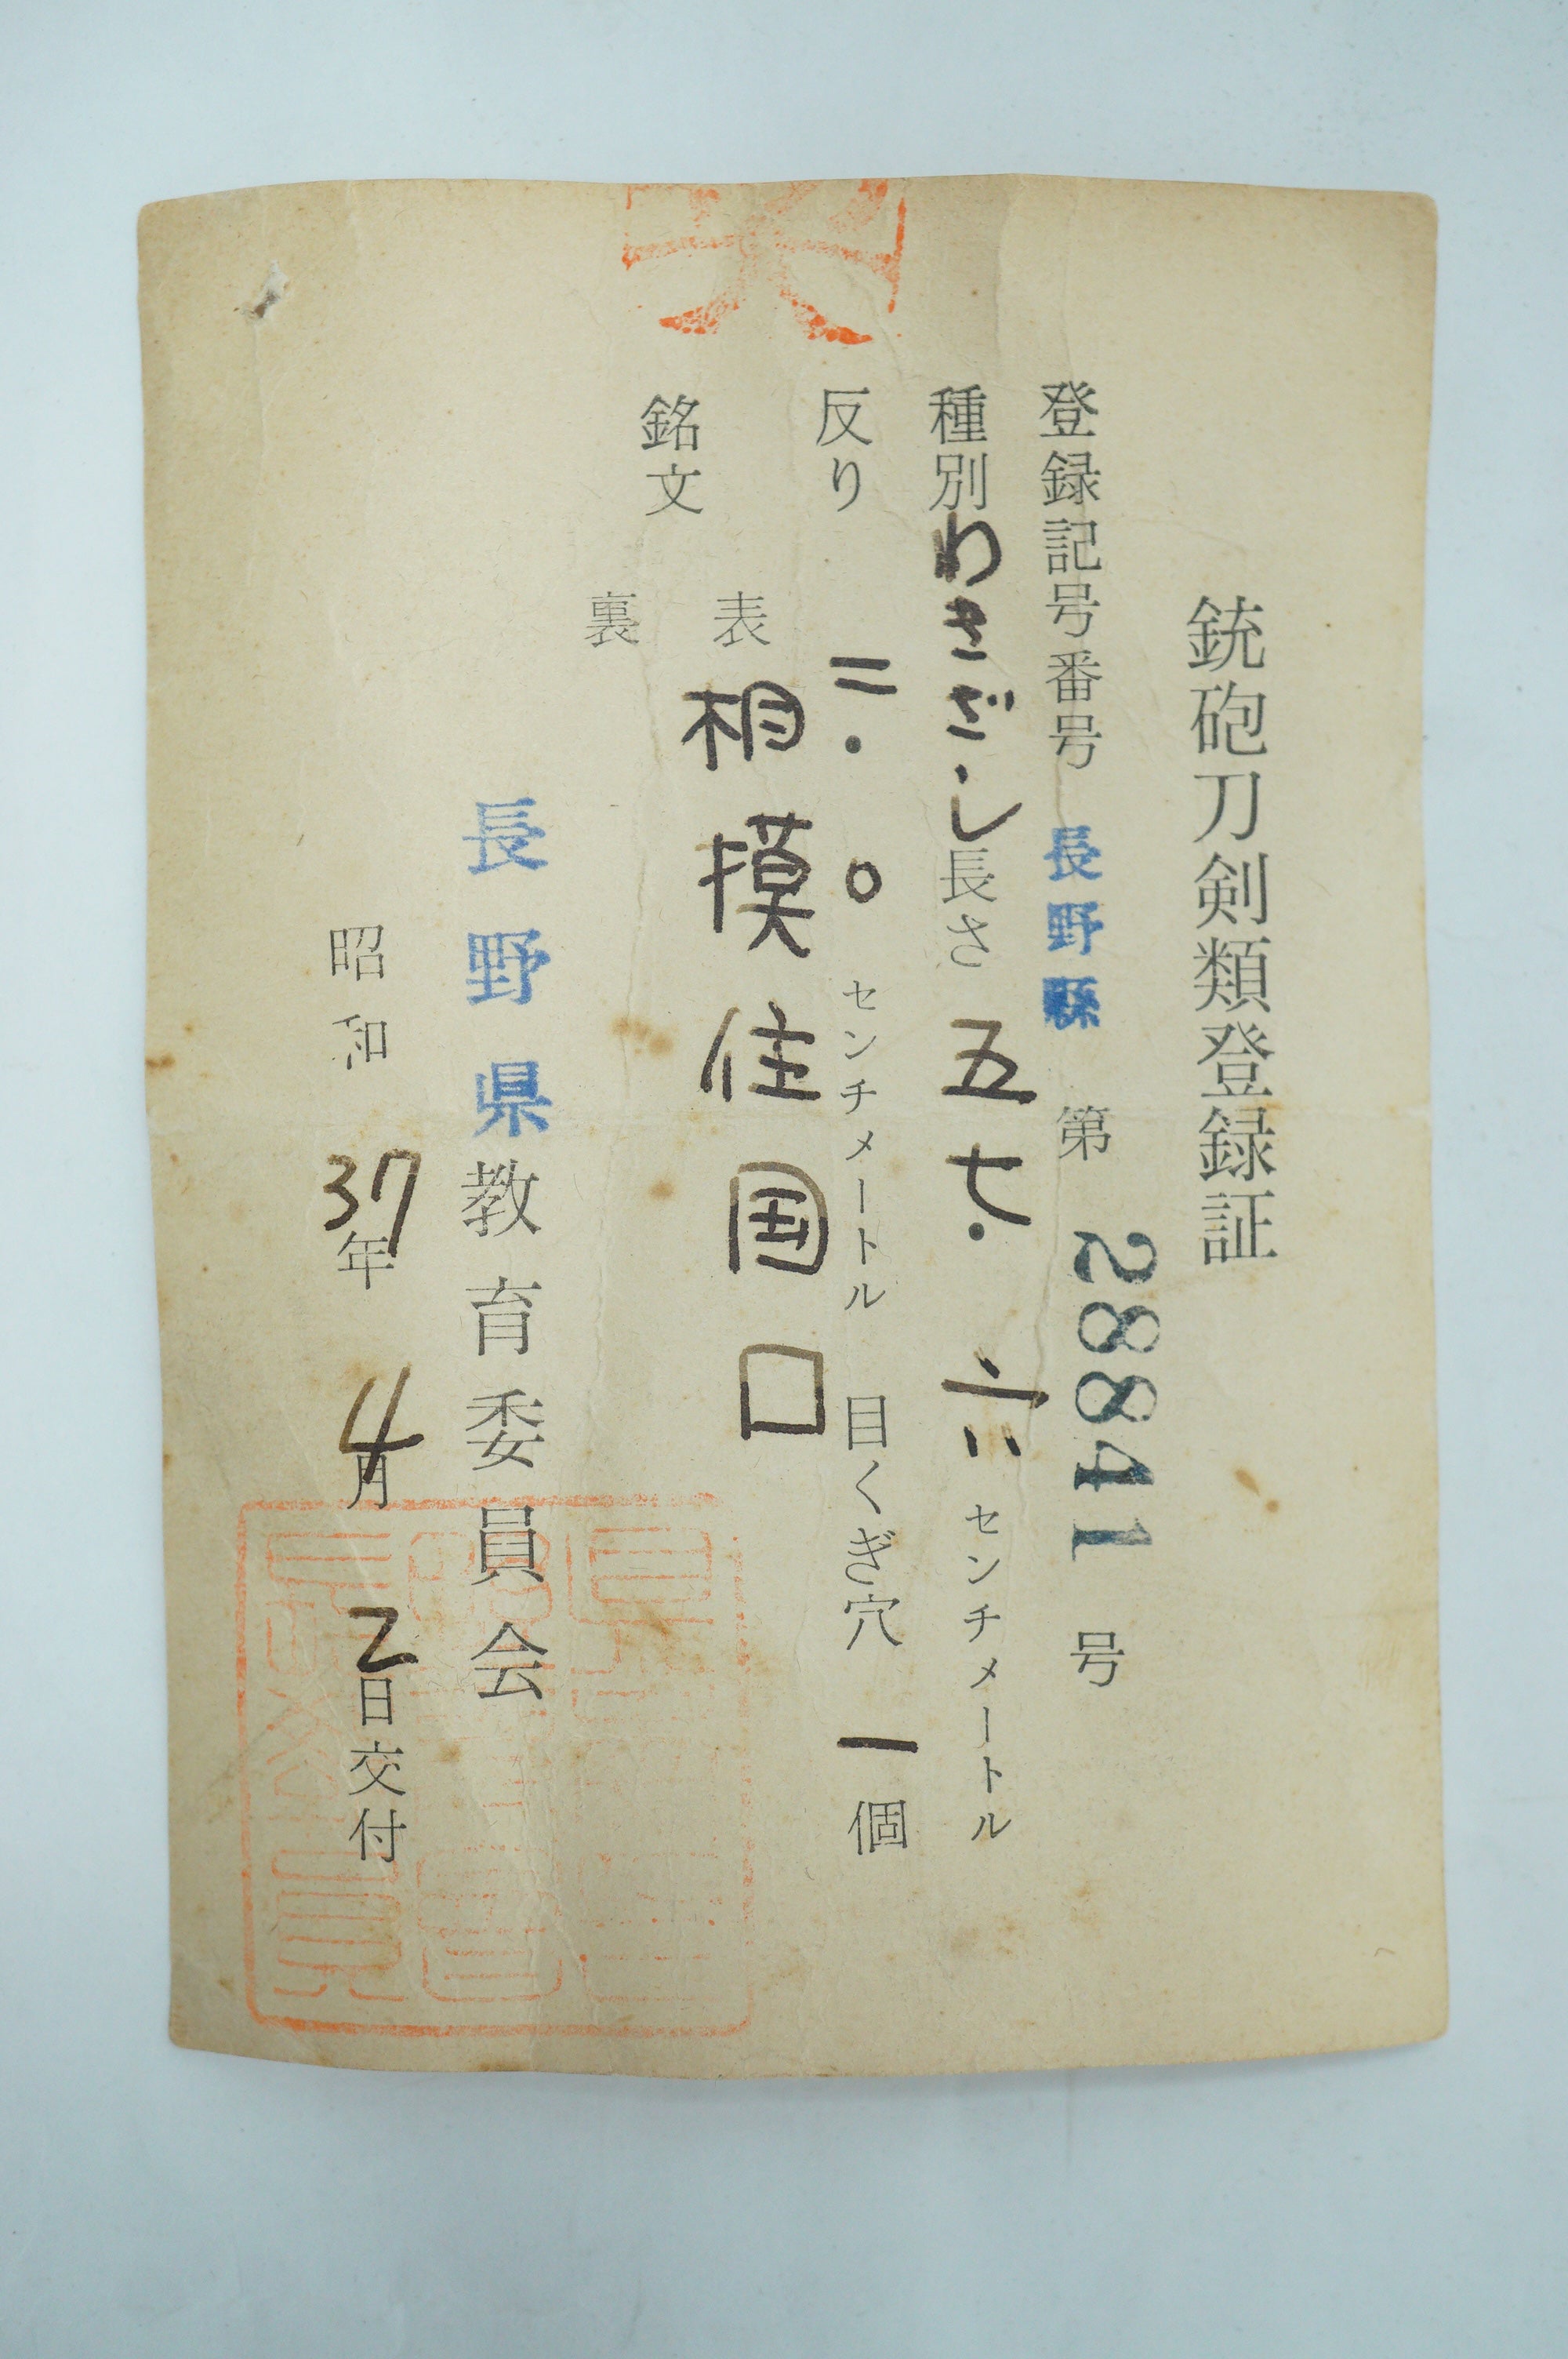 銃砲刀剣類登録証
登録記号番号 長野縣 第 28841 号
種別 わきざし 長さ 五七.六 センチメートル
反り 二.〇 センチメートル 目くぎ穴 一 個
銘文 表 相模住国□
裏
長野県教育委員会
昭和 37年 4月 2日交付